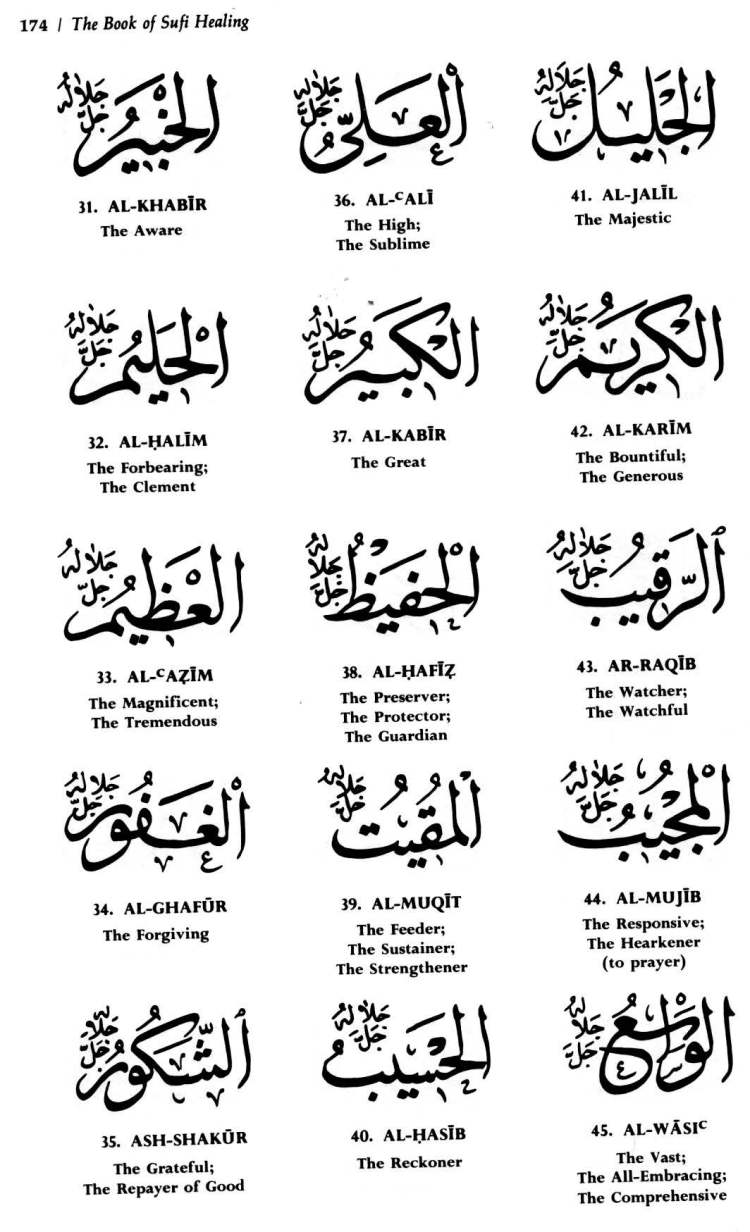 174 / The Book of Sufi Healing
الْخَبِيرُ جَلَّ جَلَالُهُ
31. AL-KHABĪR
The Aware
الْحَلِيمُ جَلَّ جَلَالُهُ
32. AL-ḤALĪM
The Forbearing;
The Clement
الْعَظِيمُ جَلَّ جَلَالُهُ
33. AL-ᶜAẒĪM
The Magnificent;
The Tremendous
الْغَفُورُ جَلَّ جَلَالُهُ
34. AL-GHAFŪR
The Forgiving
الشَّكُورُ جَلَّ جَلَالُهُ
35. ASH-SHAKŪR
The Grateful;
The Repayer of Good
الْعَلِيُّ جَلَّ جَلَالُهُ
36. AL-ᶜALĪ
The High;
The Sublime
الْكَبِيرُ جَلَّ جَلَالُهُ
37. AL-KABĪR
The Great
الْحَفِيظُ جَلَّ جَلَالُهُ
38. AL-ḤAFĪẒ
The Preserver;
The Protector;
The Guardian
الْمُقِيتُ جَلَّ جَلَالُهُ
39. AL-MUQĪT
The Feeder;
The Sustainer;
The Strengthener
الْحَسِيبُ جَلَّ جَلَالُهُ
40. AL-ḤASĪB
The Reckoner
الْجَلِيلُ جَلَّ جَلَالُهُ
41. AL-JALĪL
The Majestic
الْكَرِيمُ جَلَّ جَلَالُهُ
42. AL-KARĪM
The Bountiful;
The Generous
الرَّقِيبُ جَلَّ جَلَالُهُ
43. AR-RAQĪB
The Watcher;
The Watchful
الْمُجِيبُ جَلَّ جَلَالُهُ
44. AL-MUJĪB
The Responsive;
The Hearkener
(to prayer)
الْوَاسِعُ جَلَّ جَلَالُهُ
45. AL-WĀSIᶜ
The Vast;
The All-Embracing;
The Comprehensive